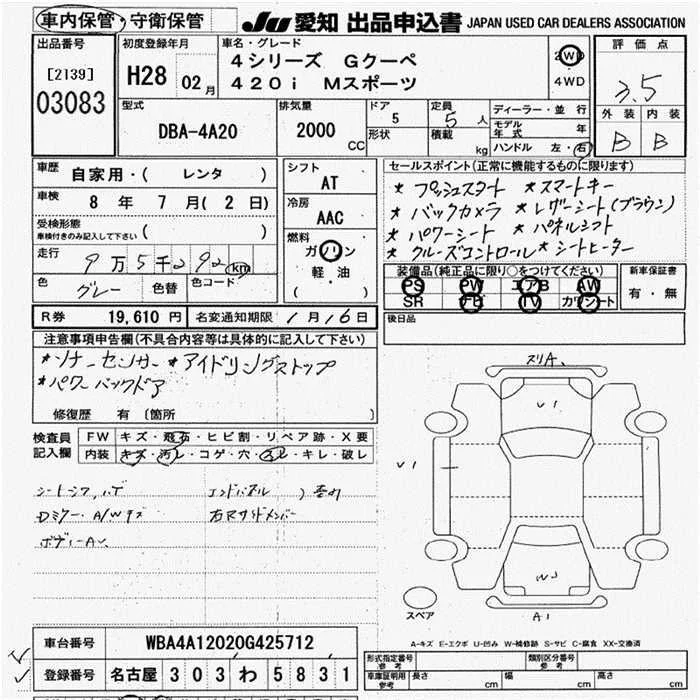 車内保管・守衛保管
JU 愛知 出品申込書 JAPAN USED CAR DEALERS ASSOCIATION
出品番号
[2139]
03083
初度登録年月
H28 02月
車名・グレード
4シリーズ Gクーペ
420i Mスポーツ
2WD
4WD
評価点
3.5
外装 内装
B B
型式
DBA-4A20
排気量
2000 CC
ドア
5
形状
定員
5 人
積載
kg
ディーラー・並行
モデル年式
ハンドル 左・右
車歴 自家用・( レンタ )
車検 8年 7月( 2日)
受検形態
車検付きのみ記入して下さい ( )
走行 9万5千292 km
色 グレー 色替 色コード
シフト
AT
冷房
AAC
燃料
ガソリン
軽・油
( )
セールスポイント(正常に機能するものに限ります)
★プッシュスタート ★スマートキー
★バックカメラ ★レザーシート(ブラウン)
★パワーシート ★パネルシフト
★クルーズコントロール ★シートヒーター
装備品(純正品に限り○をつけてください)
PS PW エアB AW
SR ナビ TV カワシート
新車保証書
有・無
R券 19,610円 名変通知期限 1月16日
後日品
注意事項申告欄(不具合内容等は具体的に記入して下さい)
★ソナーセンサー ★アイドリングストップ
★パワーバックドア
修復歴 有 〔箇所 〕
検査員記入欄
FW キズ・飛石・ヒビ割・リペア跡・X要
内装 キズ・汚レ・コゲ・穴・スレ・キレ・破レ
シートシワ, ハゲ
エンドパネル
Dミラー・A/Wキズ
ボディーAV
スリA.
U1
U1
W3
A1
スペア
A-キズ E-エクボ U-凹み W-補修跡 S-サビ C-腐食 XX-交換済
車台番号 WBA4A12020G425712
登録番号 名古屋 303 わ 5831
形式指定番号 参考
類別区分番号 参考
車庫証明用 参考 長さ cm 幅 cm 高さ cm